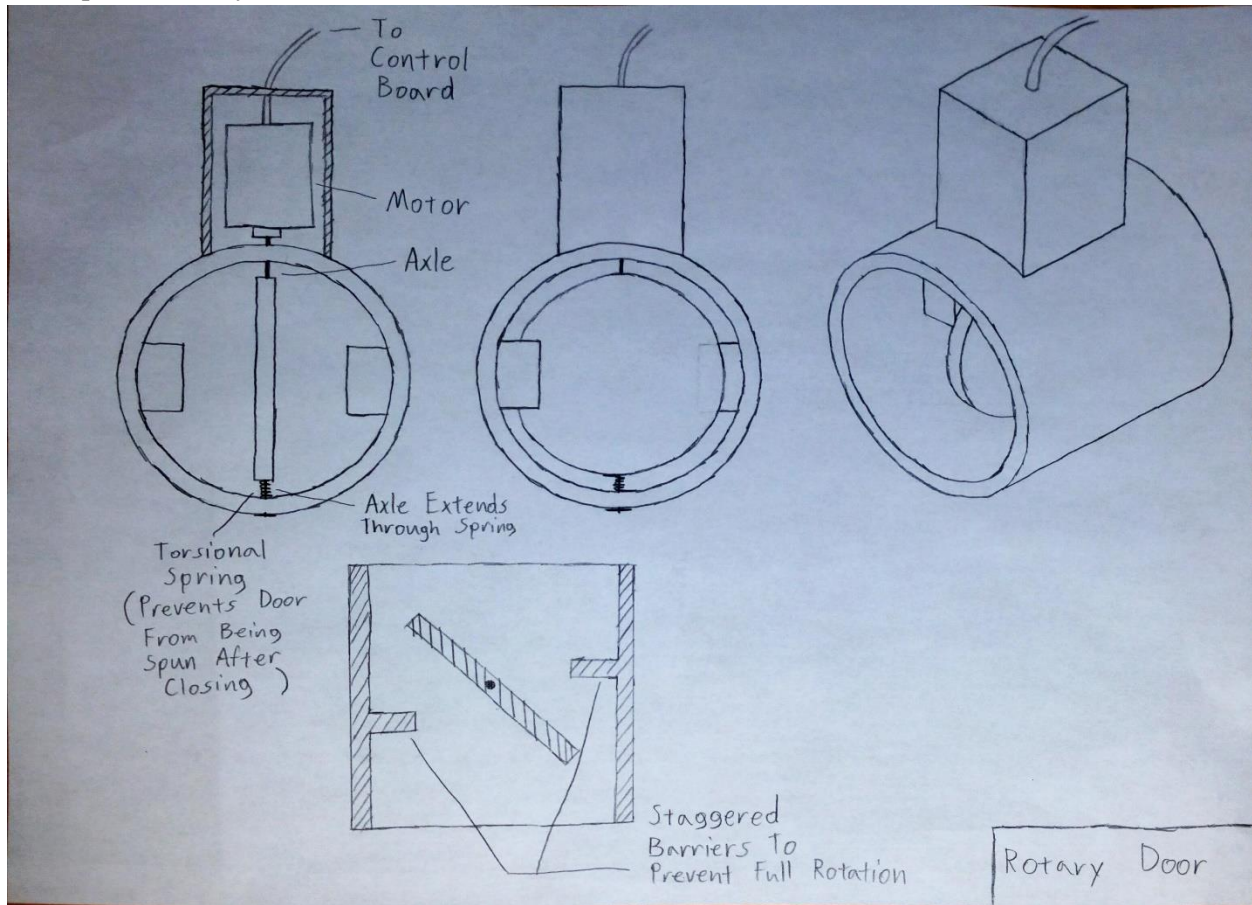 To
Control
Board
Motor
Axle
Axle Extends
Through Spring
Torsional
Spring
(Prevents Door
From Being
Spun After
Closing)
Staggered
Barriers To
Prevent Full Rotation
Rotary Door